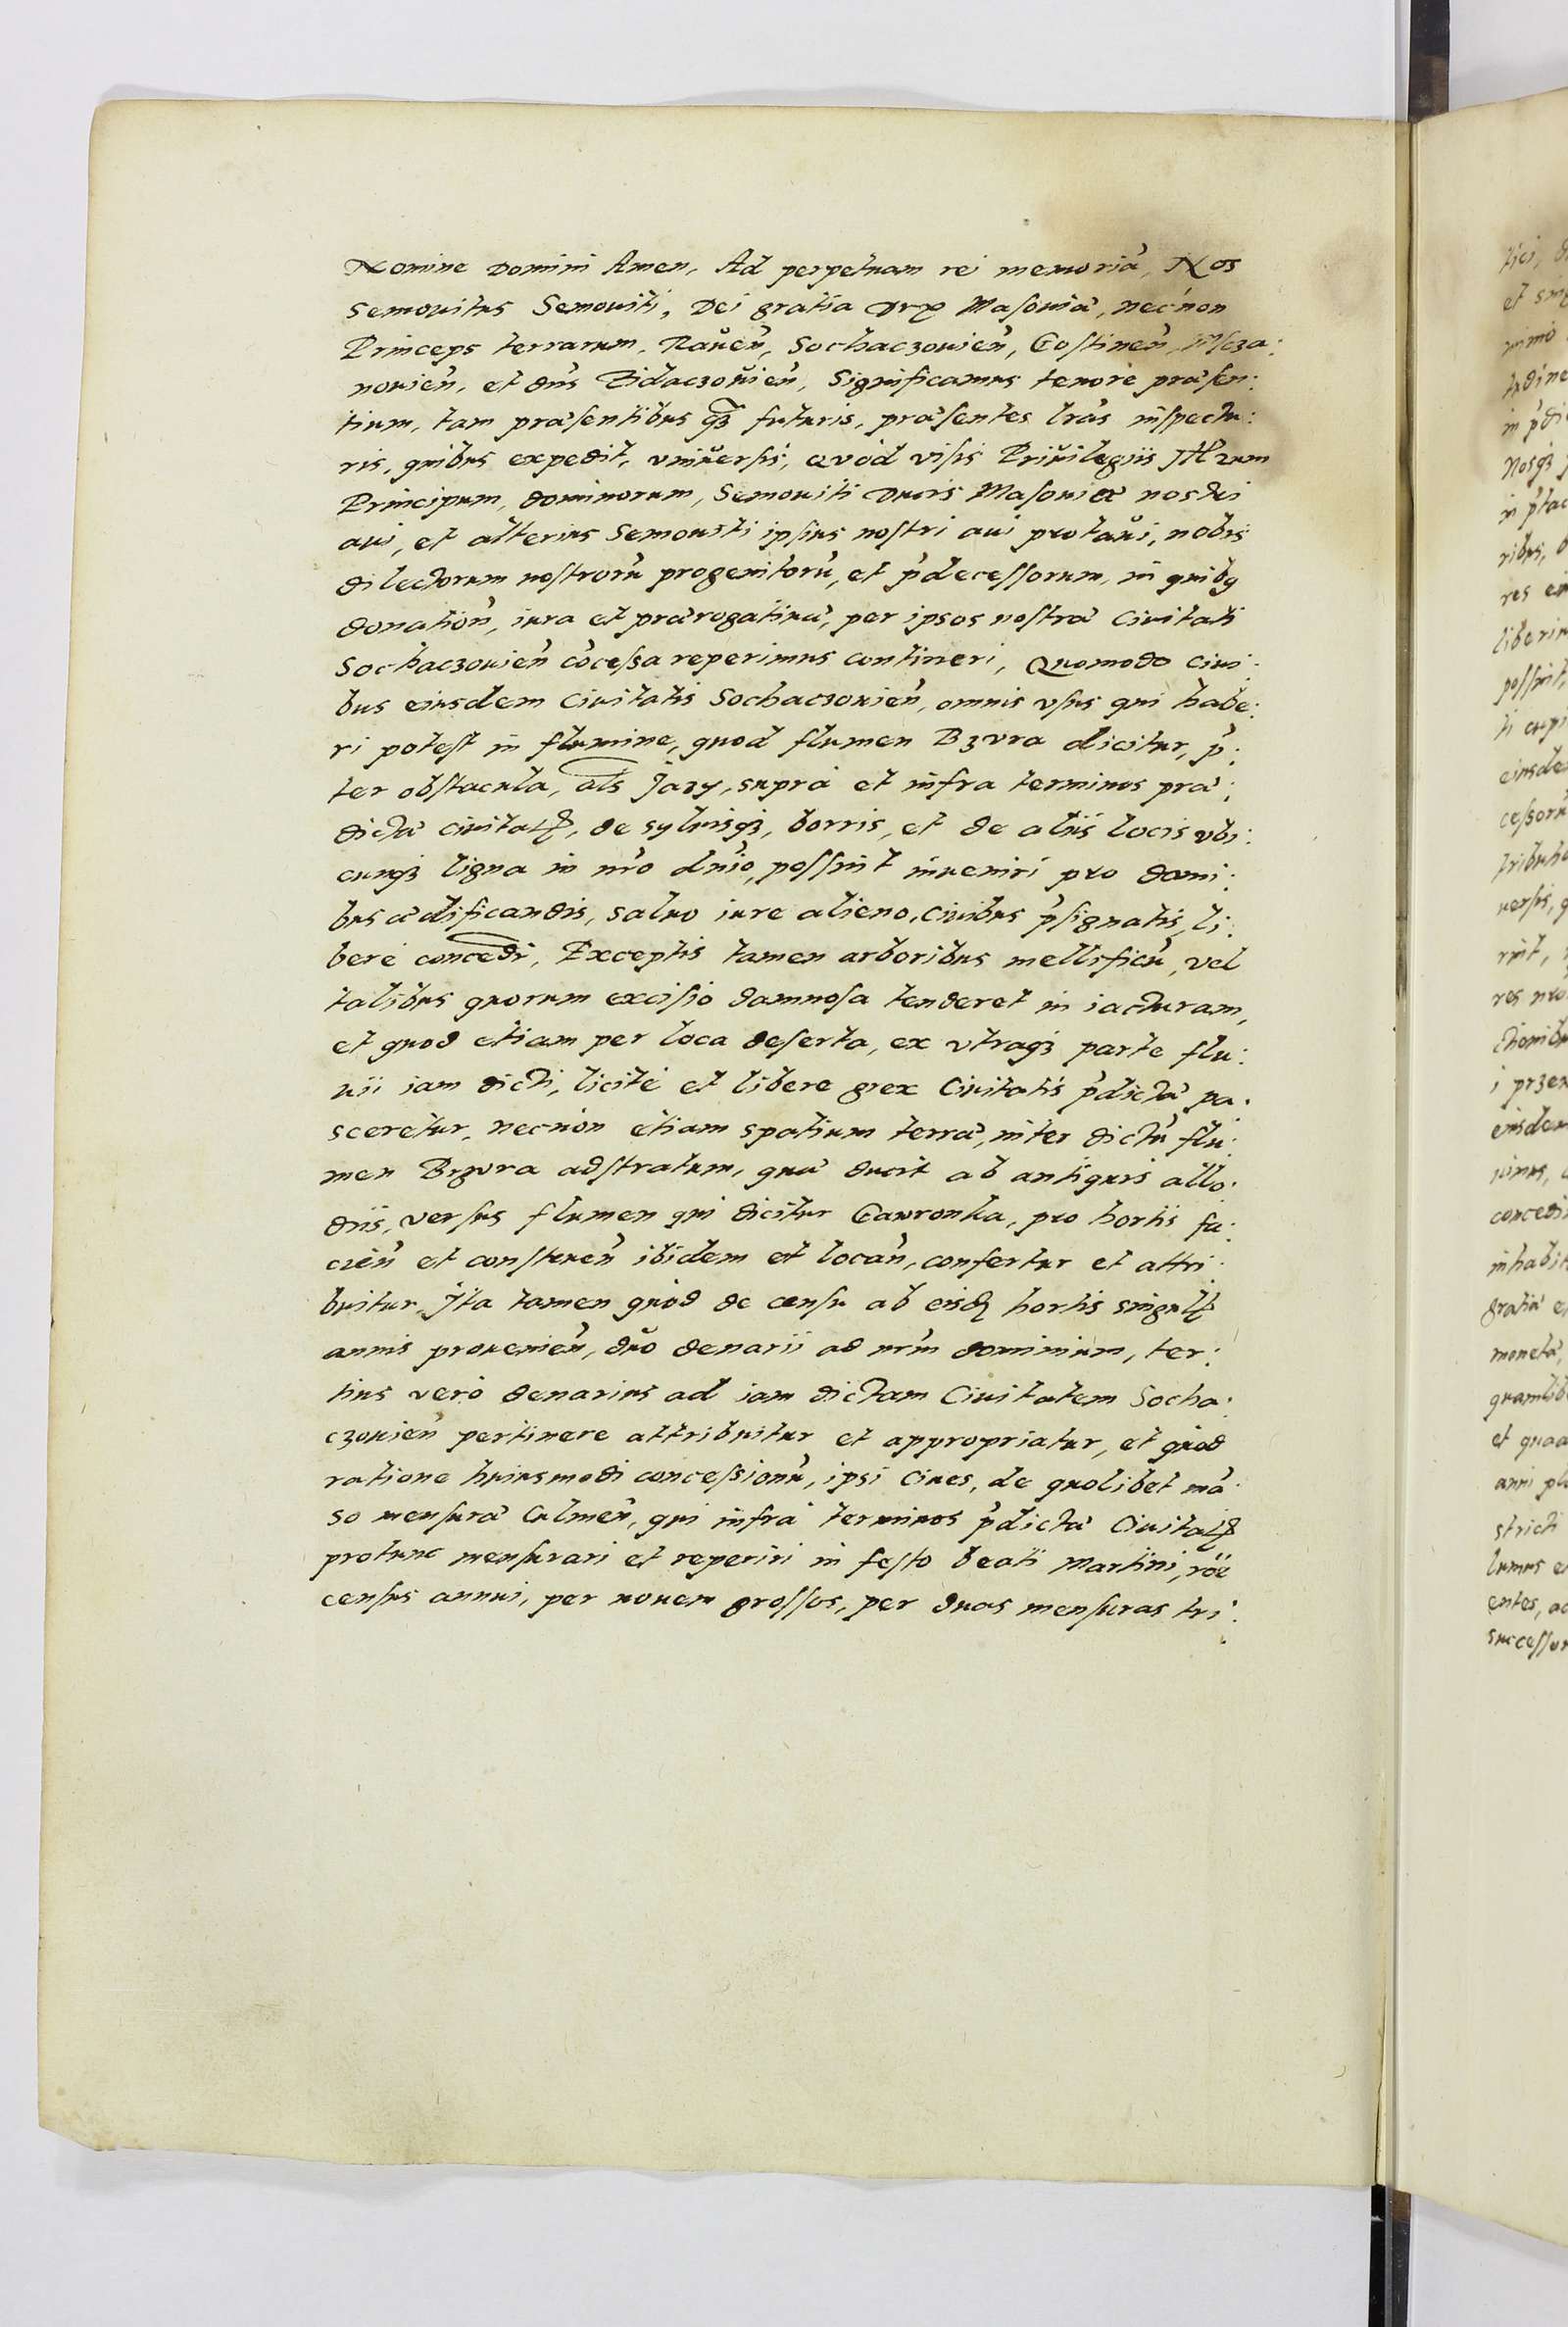 Nomine Domini Amen, Ad perpetuam rei memoriā, Nos
Semouitus Semouiti, Dei gratia Dux Masouiæ, necnon
Princeps terrarum, Raueñ, Sochaczouieñ, Gostineñ,
nouieñ, et dn̄s Bidaczouieñ, Significamus tenore præsen:
tium, tam præsentibus q̃ꝫ futuris, præsentes lr̃as inspectu:
ris, quibus expedit, vniuersis, Quòd visis Priuilegijs
Principum, dominorum, Semouiti Ducis Masouiæ nostri
aui, et alterius Semouiti ipsius nostri aui protaui, nobis
dilectorum nostrorū progenitorū, et p̃decessorum, in quibꝯ
donatioñ, iura et prærogatiuæ, per ipsos nostræ Ciuitati
Sochaczouieñ cõcessa reperimus contineri, Quomodo ciui:
bus eiusdem Ciuitatis Sochaczouieñ, omnis vsus qui habe:
ri potest in flumine, quod flumen Bzura dicitur, p̃:
ter obstacula, als Jazy, supra et infra terminos præ:
dictæ ciuitatꝭ, de syluisqꝫ, borris, et de alijs locis vbi:
cunqꝫ ligna in nr̃o dn̄io, possint inueniri pro domi:
bus ædificandis, saluo iure alieno, ciuibus p̃signatis, li:
berè concedi, Exceptis tamen arboribus mellificū, vel
talibus quorum excisio damnosa tenderet in iacturam,
et quod etiam per loca deserta, ex vtraqꝫ parte flu:
uij iam dicti, licitè et libere grex Ciuitatis p̃dictæ pa:
sceretur, necnon etiam spatium terræ, inter dictū flu:
men Bzura adstratum, quæ ducit ab antiquis allo:
dijs, versus flumen qui dicitur Gawronka, pro hortis fa:
cieñ et construeñ ibidem et locañ, confertur et attri:
buitur, Ita tamen quòd de censu ab eisdꝫ hortis singulꝭ
annis prouenieñ, duo denarij ad nr̃m dominium, ter:
tius verò denarius ad iam dictam Ciuitatem Socha:
czouieñ pertinere attribuitur et appropriatur, et quod
ratione huiusmodi concessionū, ipsi Ciues, de quolibet mã:
so mensuræ Culmeñ, qui infra terminos p̃dictæ Ciuitatꝭ
protunc mensurari et reperiri in festo beati Martini, rõe
census annui, per nouem grossos, per duas mensuras tri: